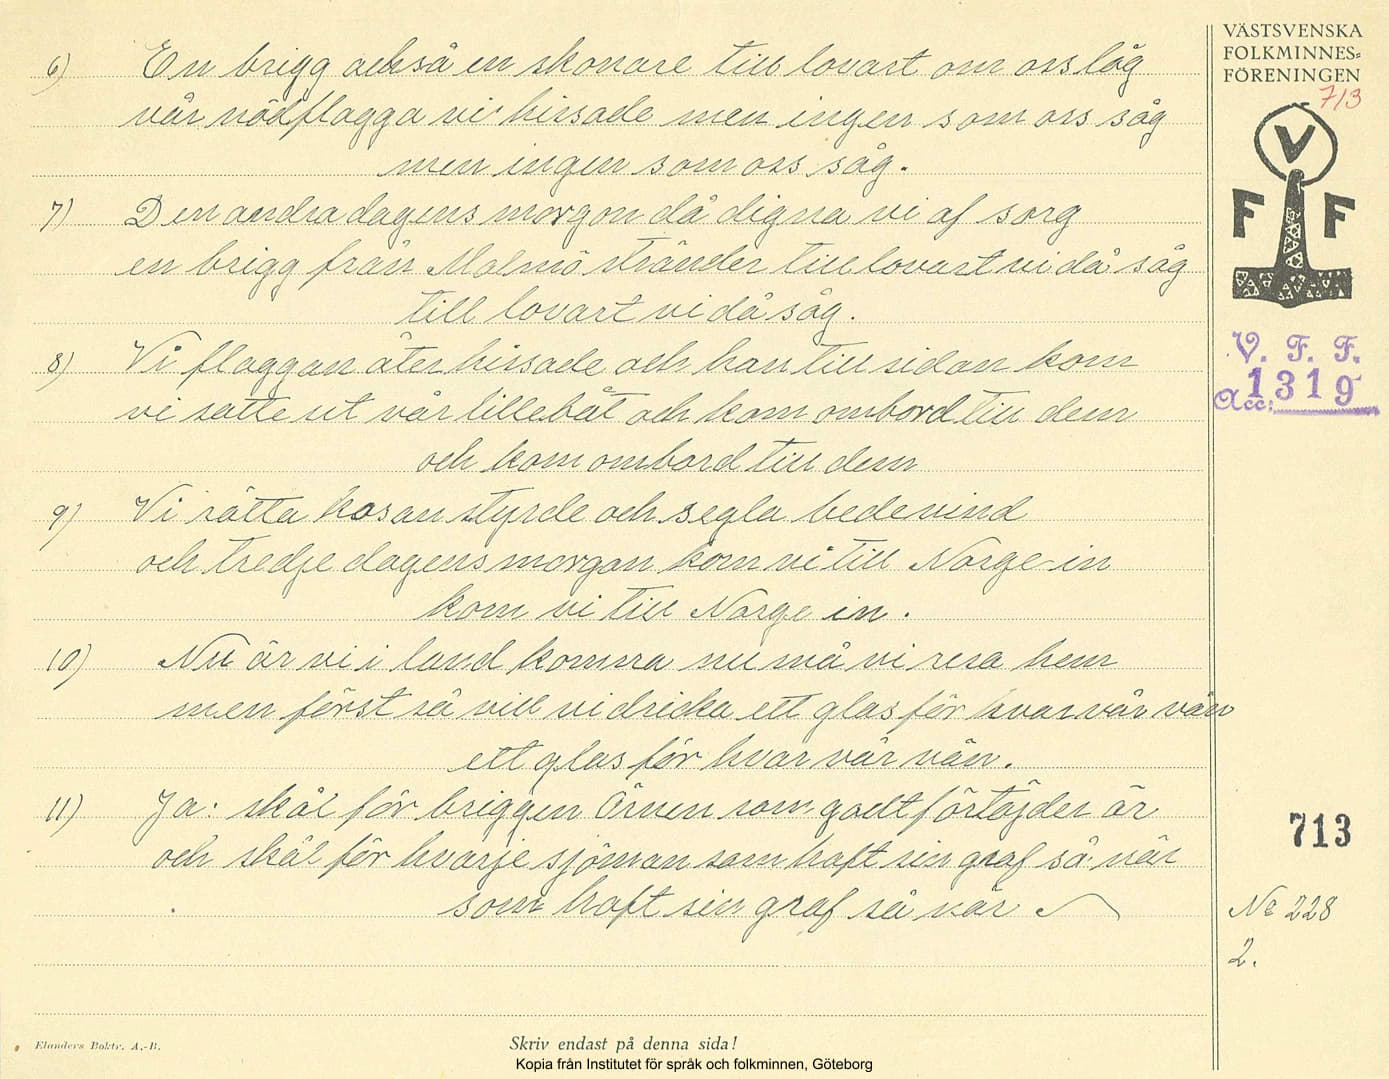 VÄSTSVENSKA
FOLKMINNES=
FÖRENINGEN
713
V
F F
V. F. F.
Acc: 1319
6) En brigg också en skonare till lovart om oss låg
vår nödflagga vi hissade men ingen som oss såg
men ingen som oss såg.
7) Den andra dagens morgon då digna vi af sorg
en brigg från Malmö stränder till lovart vi då såg
till lovart vi då såg.
8) Vi flaggan åter hissade och han till sidan kom
vi satte ut vår lille båt och kom ombord till dem
och kom ombord till dem
9) Vi rätta kosan styrde och segla bedevind
och tredje dagens morgon kom vi till Norge in
kom vi till Norge in.
10) Nu är vi i land komna nu må vi resa hem
men först så vill vi dricka ett glas för hvar vår vän
ett glas för hvar vår vän.
11) Ja: skål för briggen Örnen som godt förtöjder är
och skål för hvarje sjöman som haft sin graf så när
som haft sin graf så när
713
No 228
2.
Elanders Boktr. A.-B.
Skriv endast på denna sida!
Kopia från Institutet för språk och folkminnen, Göteborg